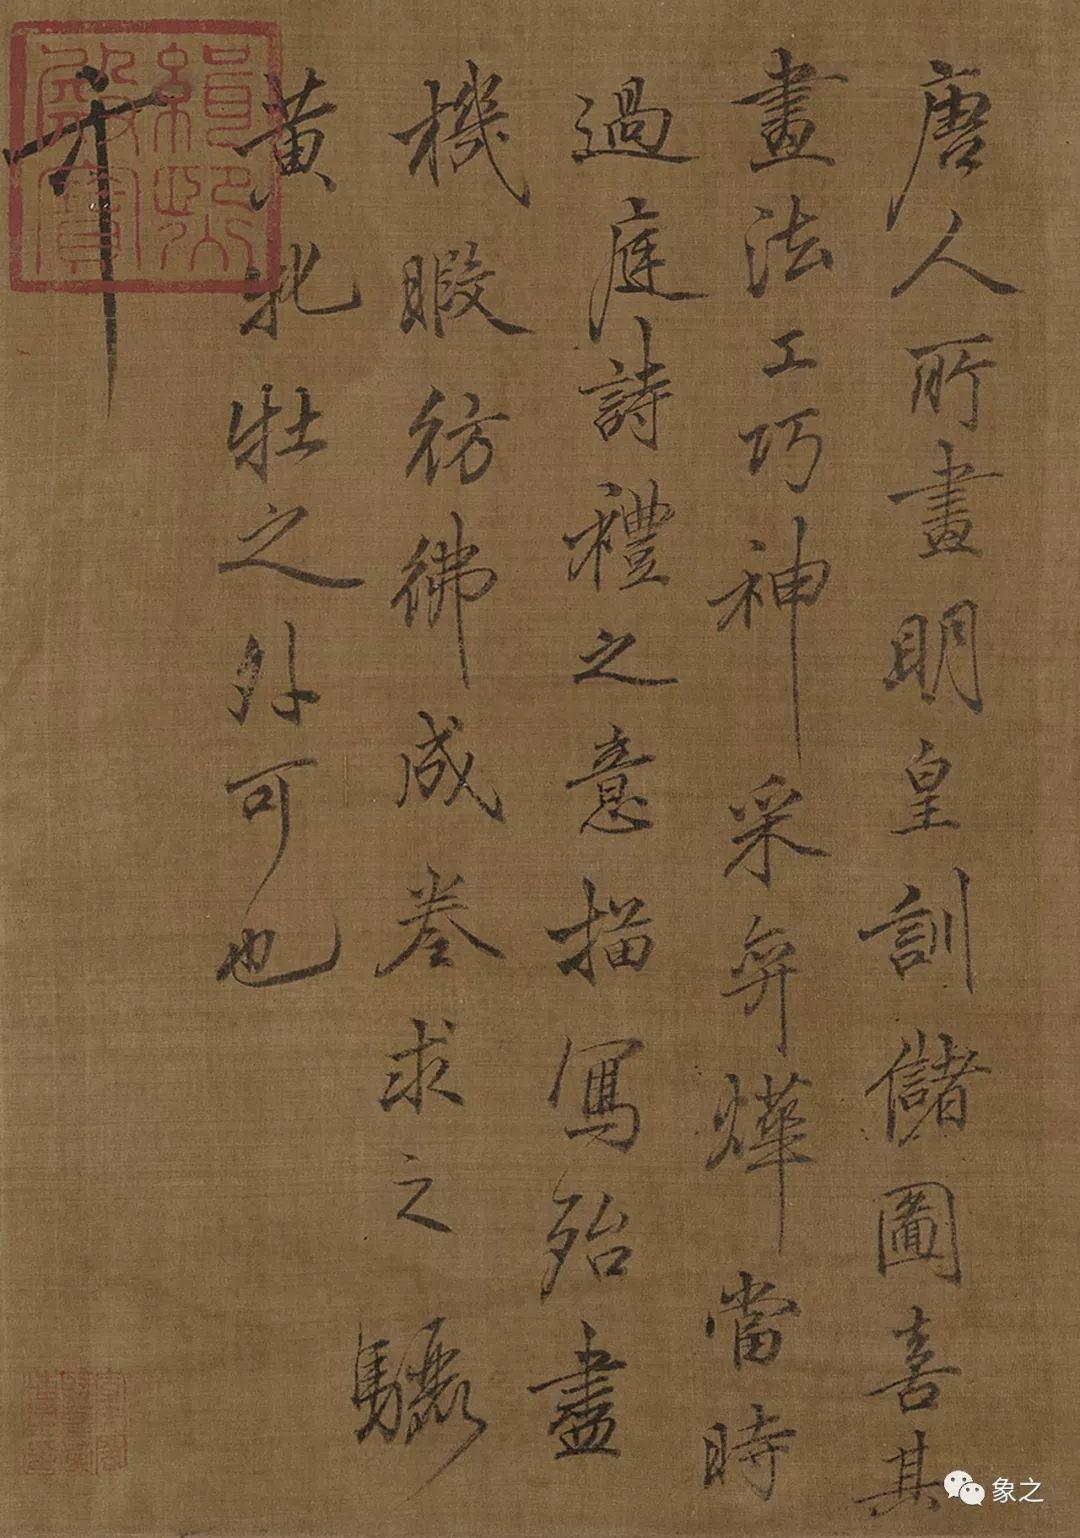 唐人所畫明皇訓儲圖喜其
畫法工巧神采弈燁當時
過庭詩禮之意描寫殆盡
機暇彷彿成卷求之驪
黃牝牡之外可也
緝熙殿寶
象之